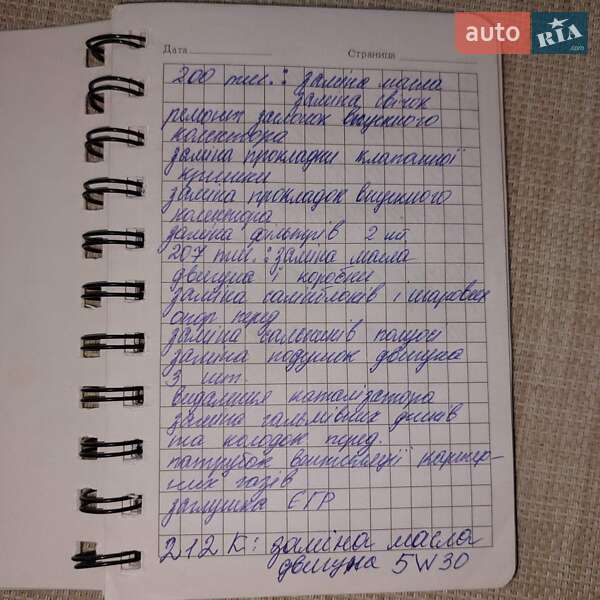 auto RIA .com
Дата Страница
200 тис.: заміна масла
заміна свічок
ремонт заслонок впускного
колектора
заміна прокладки клапанної
кришки
заміна прокладок впускного
колектора
заміна фільтрів 2 шт
207 тис.: заміна масла
двигуна і коробки
заміна сайлнблоків і шарових
опор перед
заміна сальників полуос
заміна подушок двигуна
3 шт.
видалення каталізатора
заміна гальмівних дисків
та колодок перед.
патрубок вентиляції картер-
них газів
заглушка ЕГР
212 К: заміна масла
двигуна 5W30